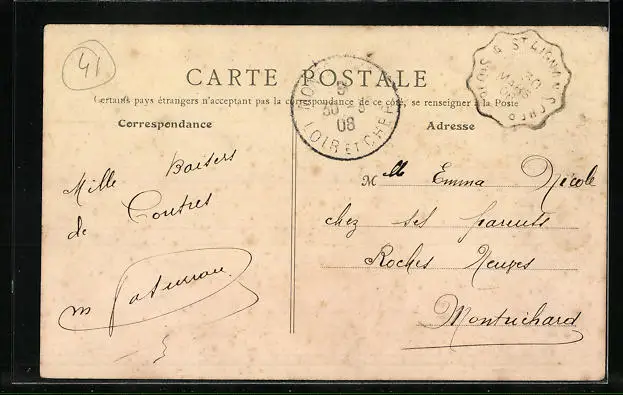 41
CARTE POSTALE
Certains pays étrangers n'acceptent pas la correspondance de ce côté, se renseigner à la Poste
Correspondance
Adresse
30 -3
08
LOIR ET CHER
BLOIS A ST AIGNAN S CHER
30
MARS
08
Mille Baisers
de Contres
Mlle Emma Nicole
chez ses parents
Roches Neuves
Montrichard